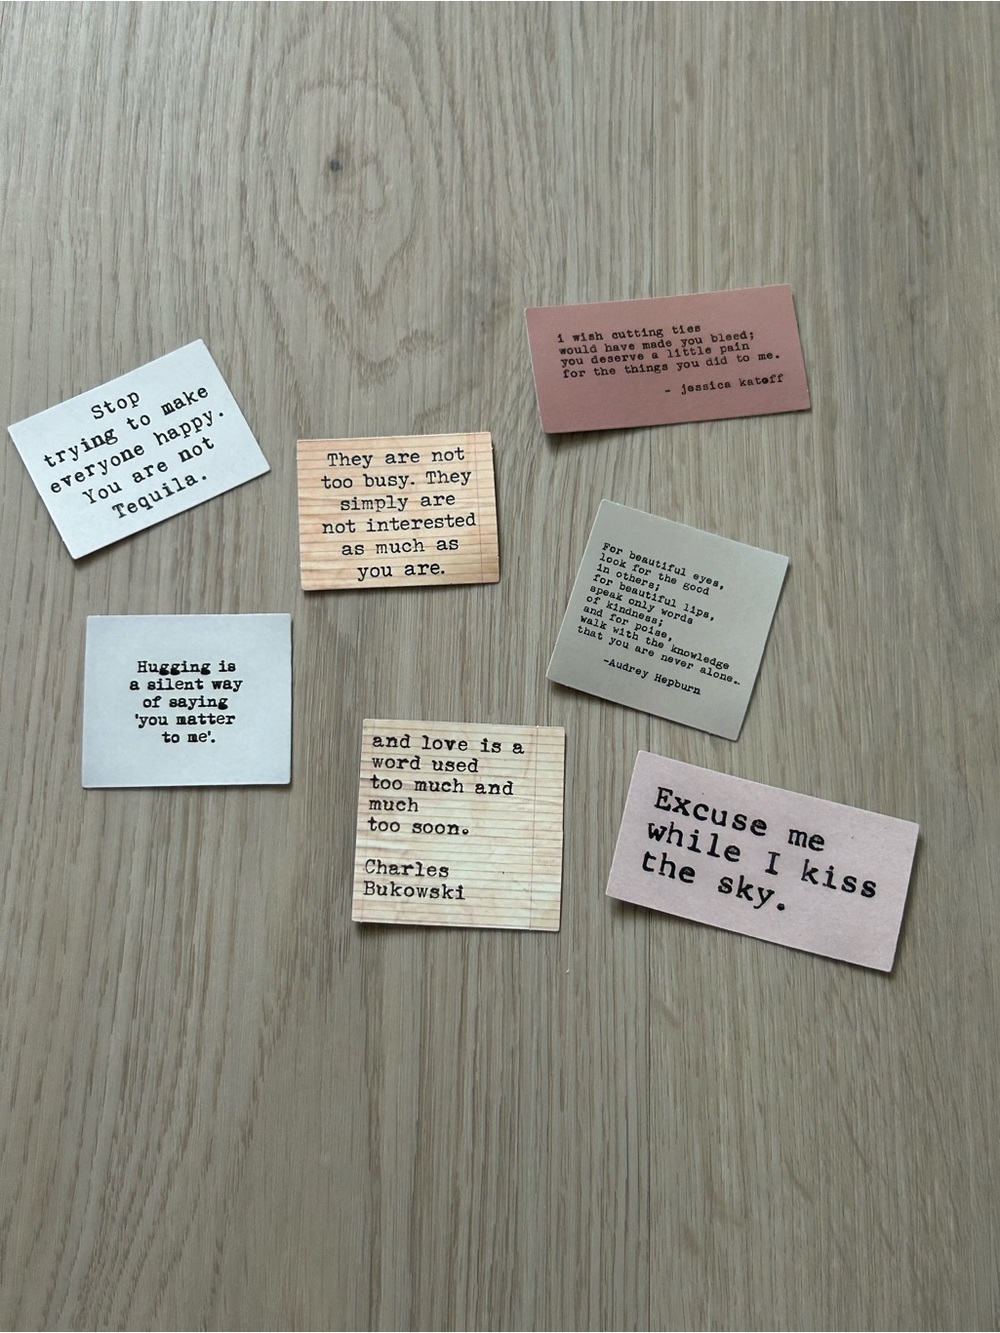 Stop
trying to make
everyone happy.
You are not
Tequila.
They are not
too busy. They
simply are
not interested
as much as
you are.
i wish cutting ties
would have made you bleed;
you deserve a little pain
for the things you did to me.
- jessica katoff
Hugging is
a silent way
of saying
'you matter
to me'.
and love is a
word used
too much and
much
too soon.
Charles
Bukowski
For beautiful eyes,
look for the good
in others;
for beautiful lips,
speak only words
of kindness;
and for poise,
walk with the knowledge
that you are never alone.
-Audrey Hepburn
Excuse me
while I kiss
the sky.